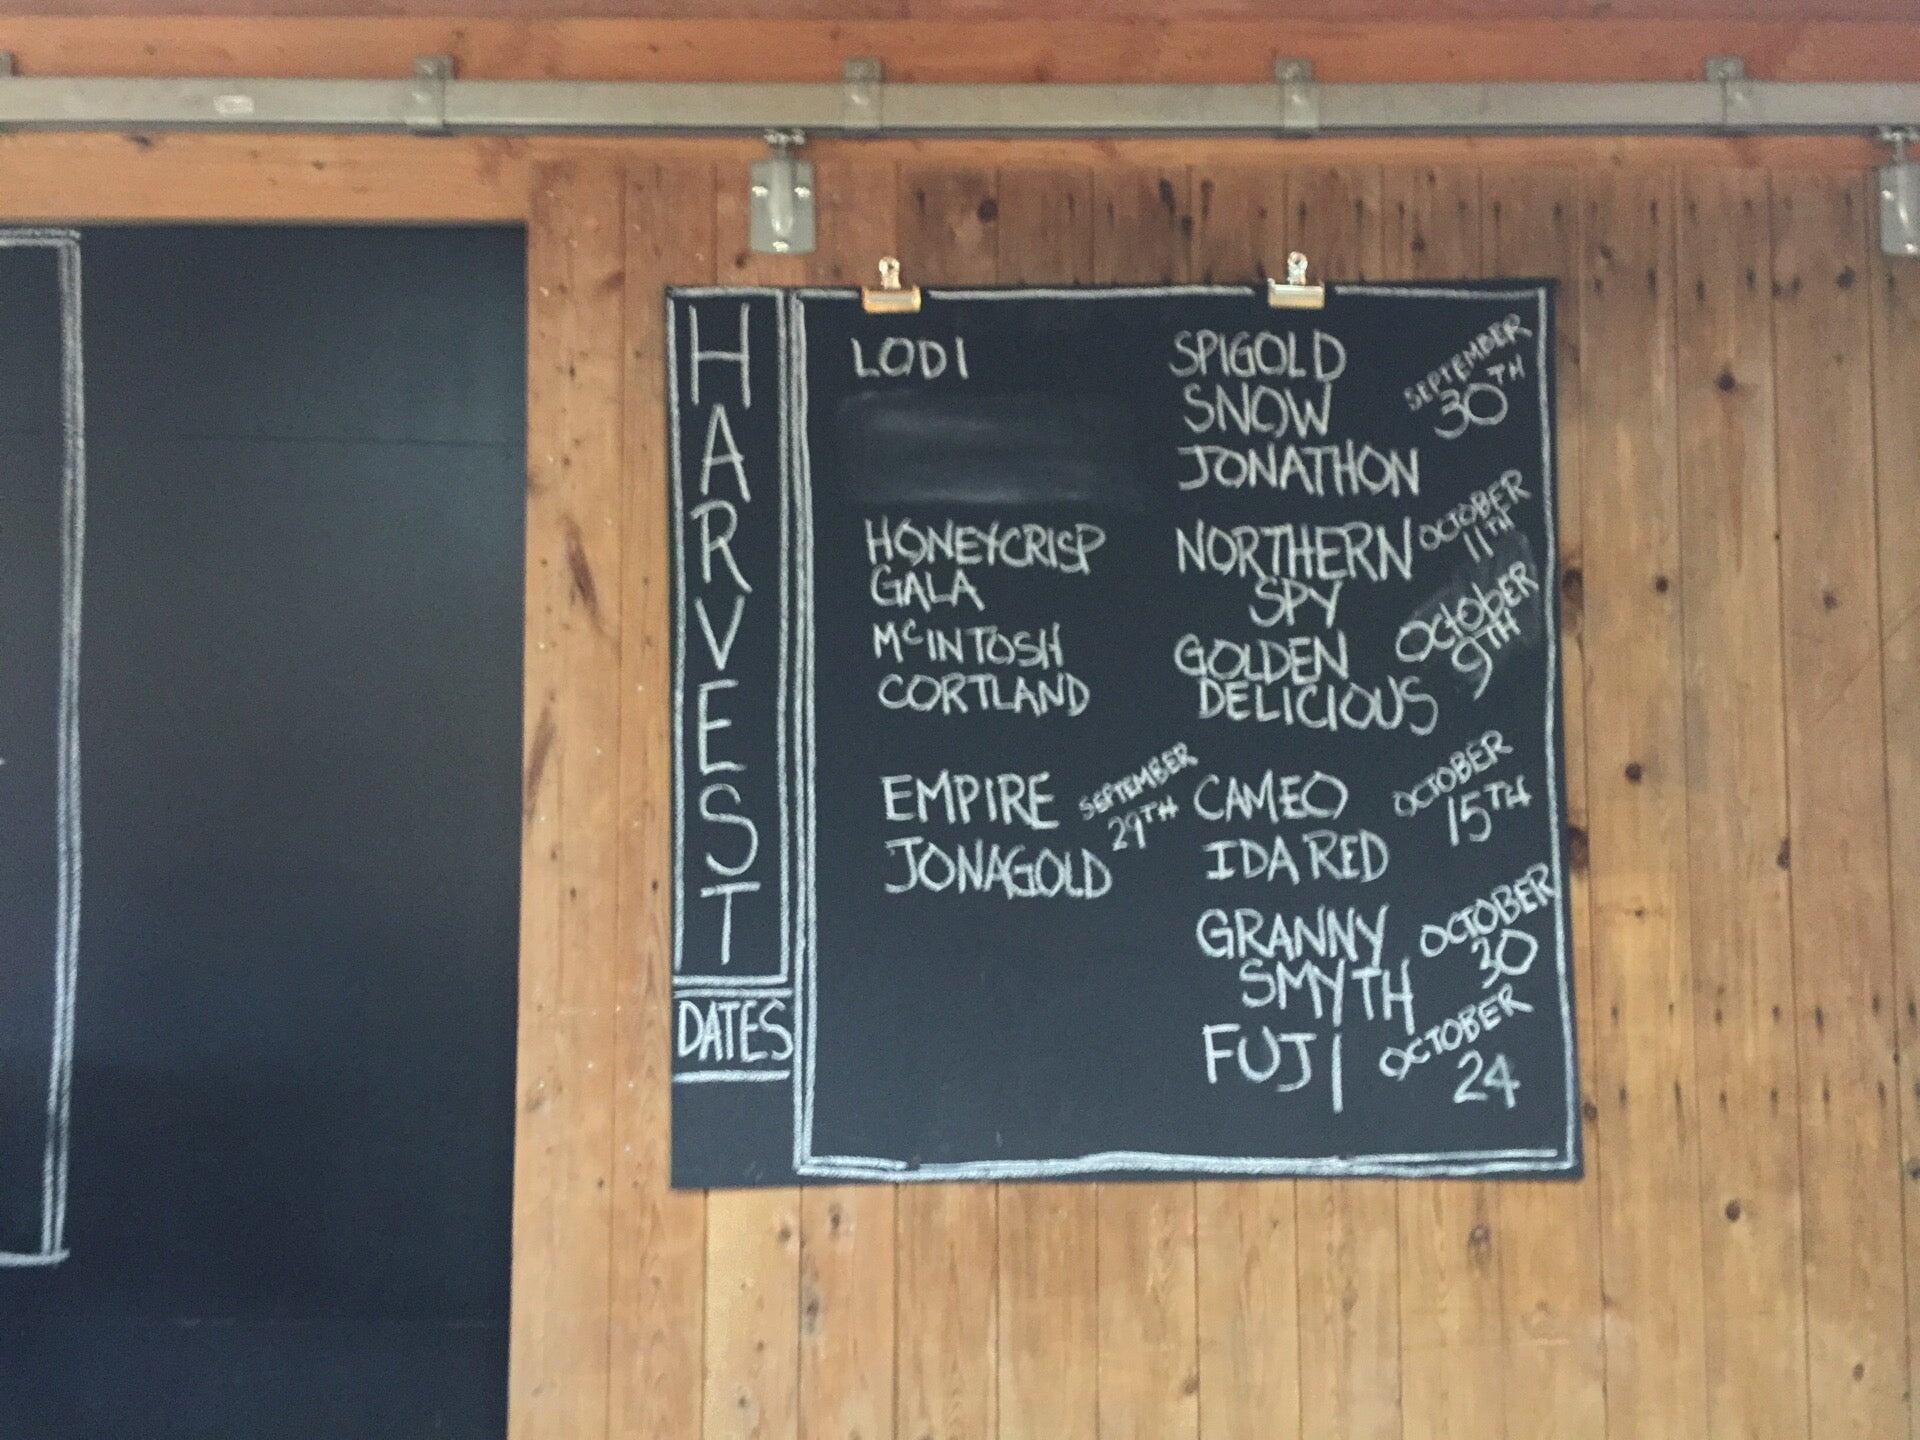 HARVEST
DATES
LODI
HONEYCRISP
GALA
McINTOSH
CORTLAND
EMPIRE SEPTEMBER
29TH
JONAGOLD
SPIGOLD SEPTEMBER
SNOW 30TH
JONATHON
NORTHERN OCTOBER
SPY 11TH
GOLDEN OCTOBER
DELICIOUS 9TH
CAMEO OCTOBER
IDA RED 15TH
GRANNY OCTOBER
SMYTH 30
FUJI OCTOBER
24